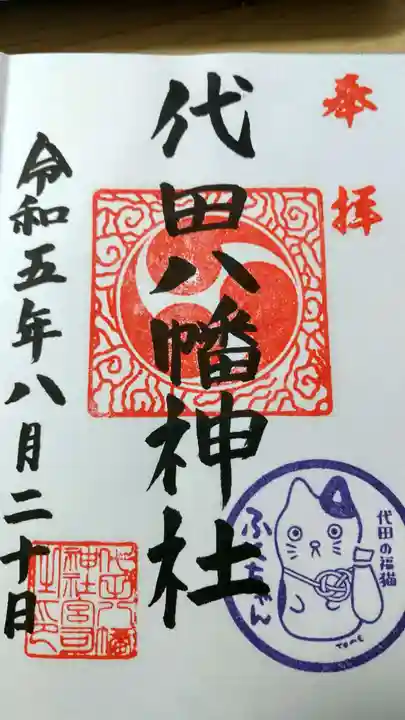 奉拝
代田八幡神社
令和五年八月二十日
代田八幡
神社宮司
之印
代田の福猫
ふくちゃん
TOME